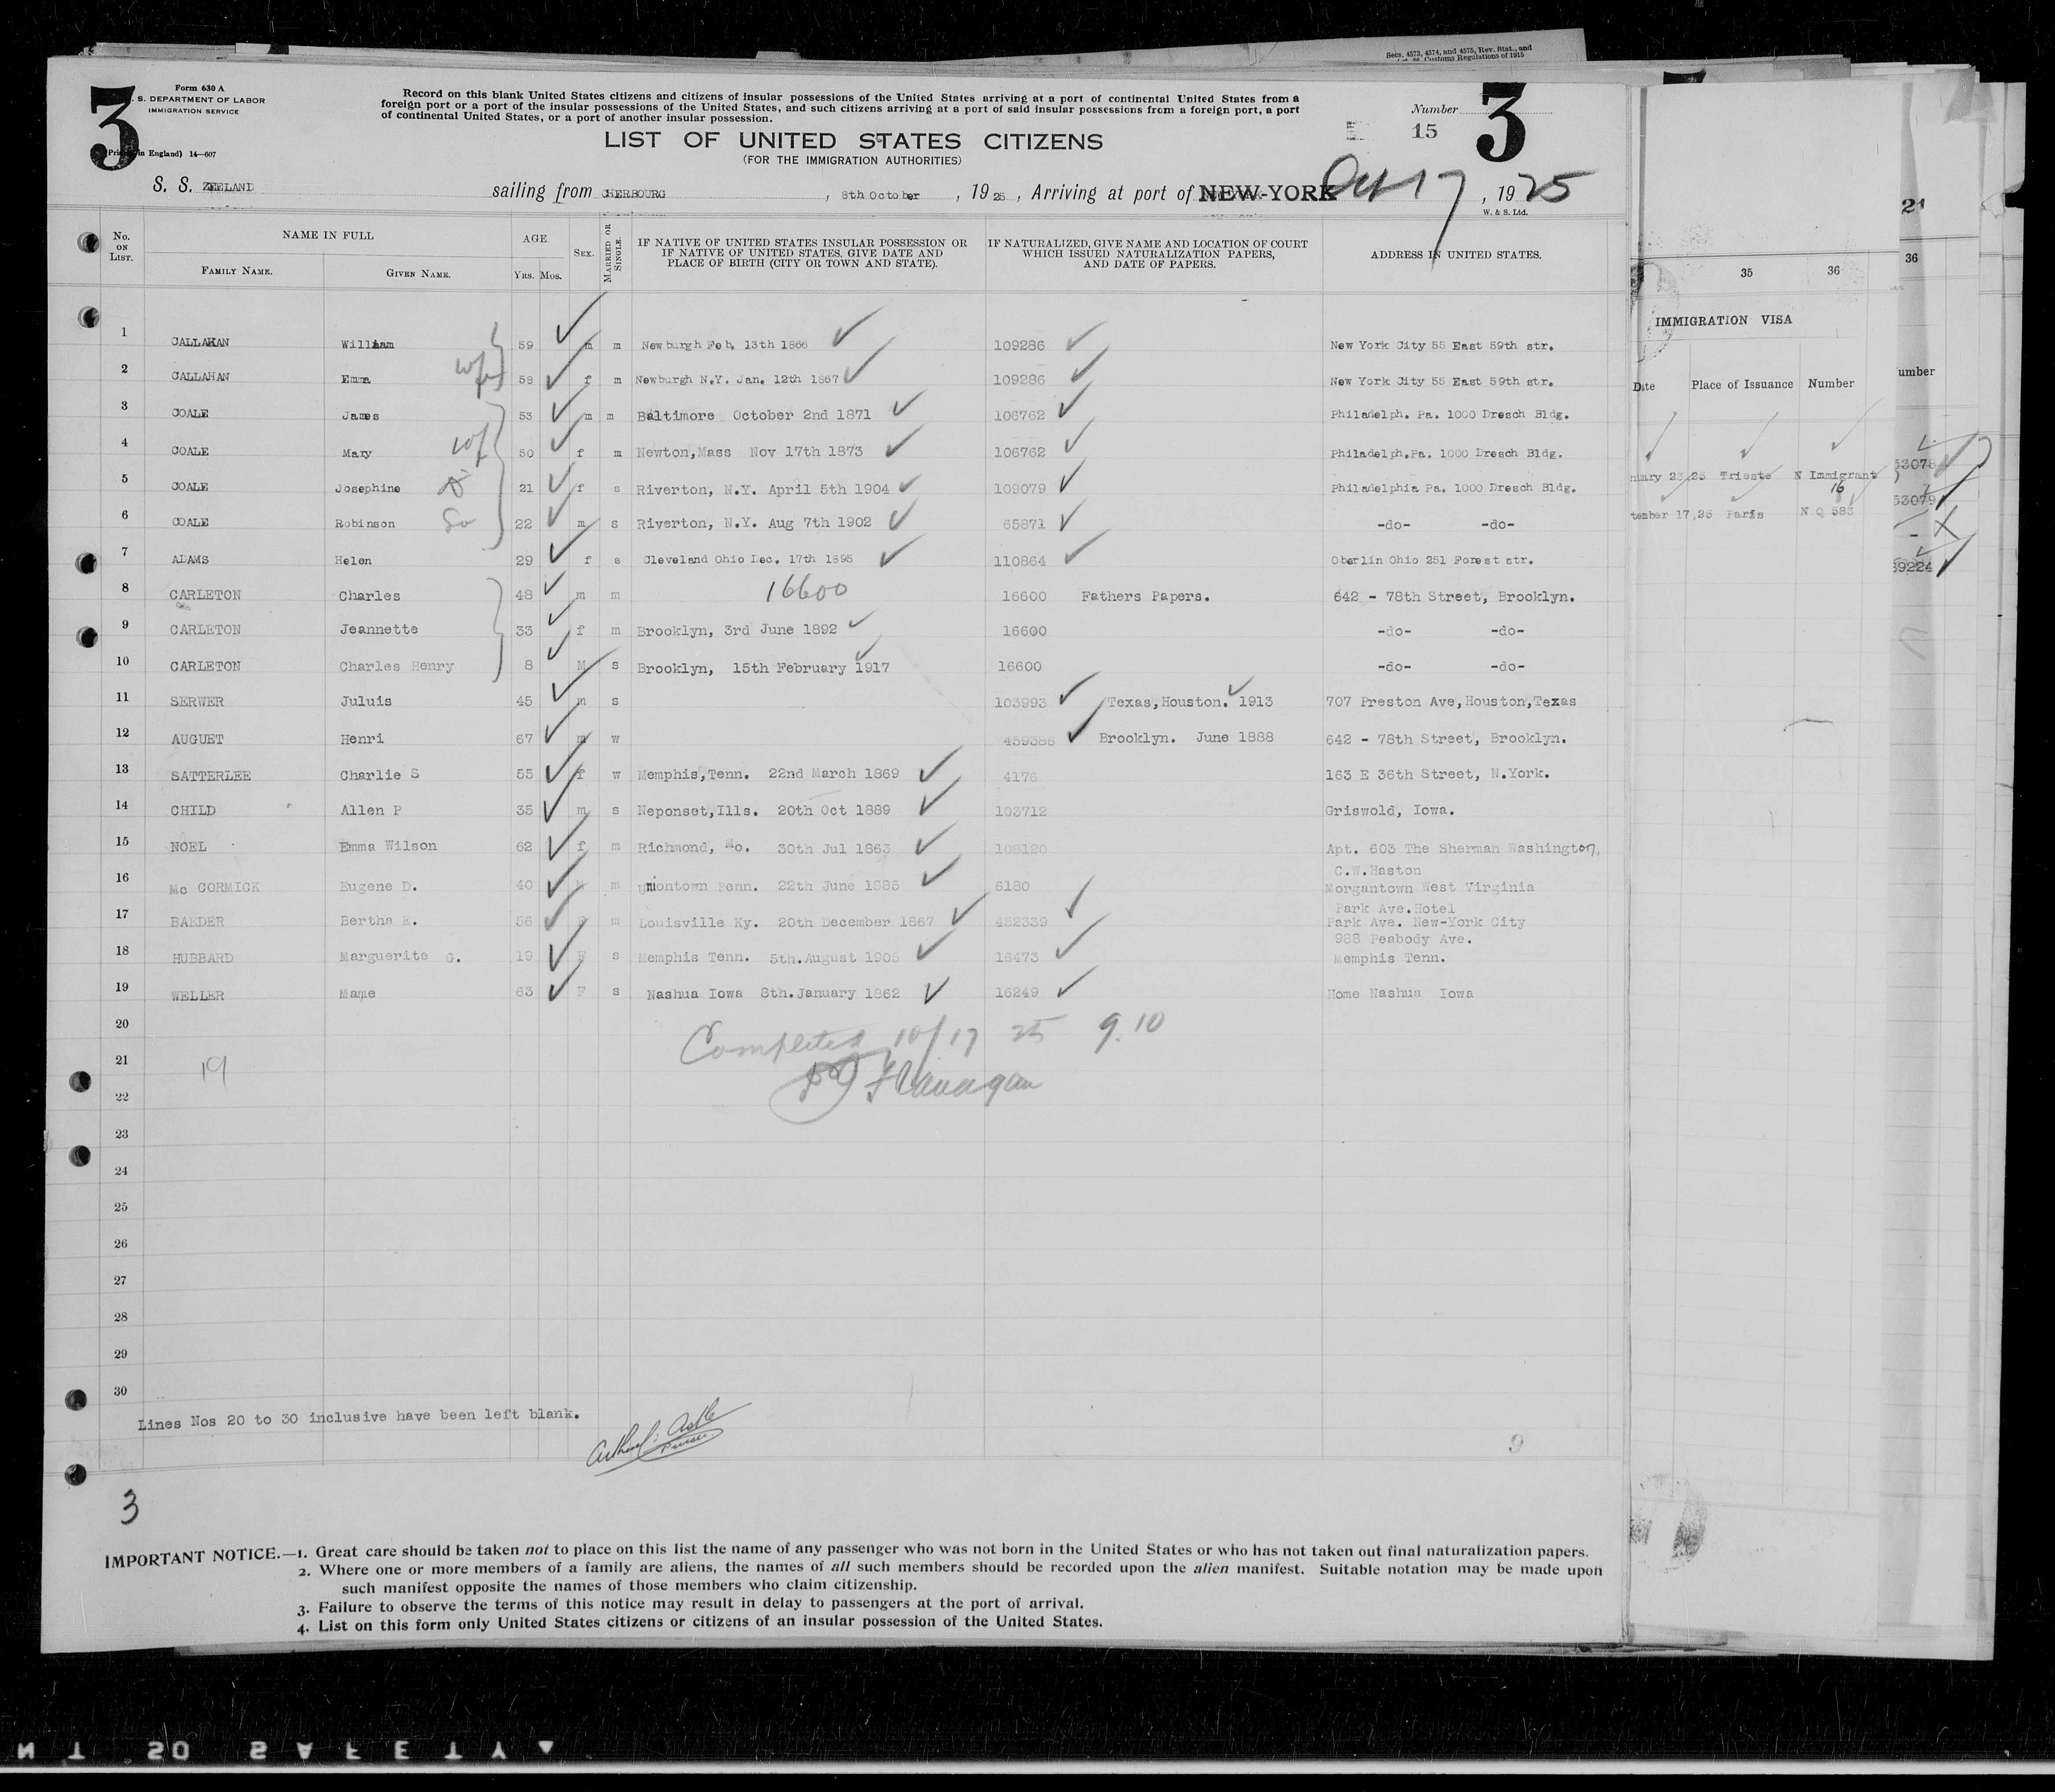 Secs. 4573, 4574, and 4575, Rev. Stat., and
Customs Regulations of 1915
3
Form 630 A
S. DEPARTMENT OF LABOR
IMMIGRATION SERVICE
in England) 14—607
Record on this blank United States citizens and citizens of insular possessions of the United States arriving at a port of continental United States from a
foreign port or a port of the insular possessions of the United States, and such citizens arriving at a port of said insular possessions from a foreign port, a port
of continental United States, or a port of another insular possession.
LIST OF UNITED STATES CITIZENS
(FOR THE IMMIGRATION AUTHORITIES)
Number
15
3
S. S. ZEELAND sailing from CHERBOURG, 8th October, 1925, Arriving at port of NEW-YORK Oct 17, 1925
W. & S. Ltd.
No. ON LIST. NAME IN FULL AGE SEX. MARRIED OR SINGLE. IF NATIVE OF UNITED STATES INSULAR POSSESSION OR IF NATIVE OF UNITED STATES, GIVE DATE AND PLACE OF BIRTH (CITY OR TOWN AND STATE). IF NATURALIZED, GIVE NAME AND LOCATION OF COURT WHICH ISSUED NATURALIZATION PAPERS, AND DATE OF PAPERS. ADDRESS IN UNITED STATES.
FAMILY NAME. GIVEN NAME. YRS. MOS.
1 CALLAHAN William 59 m m Newburgh Feb. 13th 1866 109286 New York City 55 East 59th str.
2 CALLAHAN Emma wf 58 f m Newburgh N.Y. Jan. 12th 1867 109286 New York City 55 East 59th str.
3 COALE James 53 m m Baltimore October 2nd 1871 106762 Philadelph. Pa. 1000 Dresch Bldg.
4 COALE Mary wf 50 f m Newton,Mass Nov 17th 1873 106762 Philadelph.Pa. 1000 Dresch Bldg.
5 COALE Josephine 21 f s Riverton, N.Y. April 5th 1904 109079 Philadelphia Pa. 1000 Dresch Bldg.
6 COALE Robinson So 22 m s Riverton, N.Y. Aug 7th 1902 65871 -do- -do-
7 ADAMS Helen 29 f s Cleveland Ohio Dec. 17th 1895 110864 Oberlin Ohio 251 Forest str.
8 CARLETON Charles 48 m m 16600 16600 Fathers Papers. 642 - 78th Street, Brooklyn.
9 CARLETON Jeannette 33 f m Brooklyn, 3rd June 1892 16600 -do- -do-
10 CARLETON Charles Henry 8 M s Brooklyn, 15th February 1917 16600 -do- -do-
11 SERWER Juluis 45 m s 103993 Texas,Houston. 1913 707 Preston Ave,Houston,Texas
12 AUGUET Henri 67 m w 459386 Brooklyn. June 1888 642 - 78th Street, Brooklyn.
13 SATTERLEE Charlie S 55 f w Memphis,Tenn. 22nd March 1869 4176 163 E 36th Street, N.York.
14 CHILD Allen P 35 m s Neponset,Ills. 20th Oct 1889 103712 Griswold, Iowa.
15 NOEL Emma Wilson 62 f m Richmond, Mo. 30th Jul 1863 108120 Apt. 603 The Sherman Washington,
C.W.Haston
16 Mc CORMICK Eugene D. 40 m Uniontown Penn. 22th June 1885 6180 Morgantown West Virginia
Park Ave.Hotel
17 BAEDER Bertha E. 56 F m Louisville Ky. 20th December 1867 452339 Park Ave. New-York City
988 Peabody Ave.
18 HUBBARD Marguerite G. 19 F s Memphis Tenn. 5th.August 1905 16473 Memphis Tenn.
19 WELLER Mame 63 F s Nashua Iowa 8th.January 1862 16249 Home Nashua Iowa
20
Completed 10/17 25 9.10
21
19
Flanagan
22
23
24
25
26
27
28
29
30
Lines Nos 20 to 30 inclusive have been left blank.
Purser
9
3
IMPORTANT NOTICE.—1. Great care should be taken not to place on this list the name of any passenger who was not born in the United States or who has not taken out final naturalization papers.
2. Where one or more members of a family are aliens, the names of all such members should be recorded upon the alien manifest. Suitable notation may be made upon
such manifest opposite the names of those members who claim citizenship.
3. Failure to observe the terms of this notice may result in delay to passengers at the port of arrival.
4. List on this form only United States citizens or citizens of an insular possession of the United States.
35 36
IMMIGRATION VISA
Date Place of Issuance Number
23,25 Trieste N Immigrant
16
17,25 Paris N Q 583
21
36
umber
53078
53079
39224
SAFETY